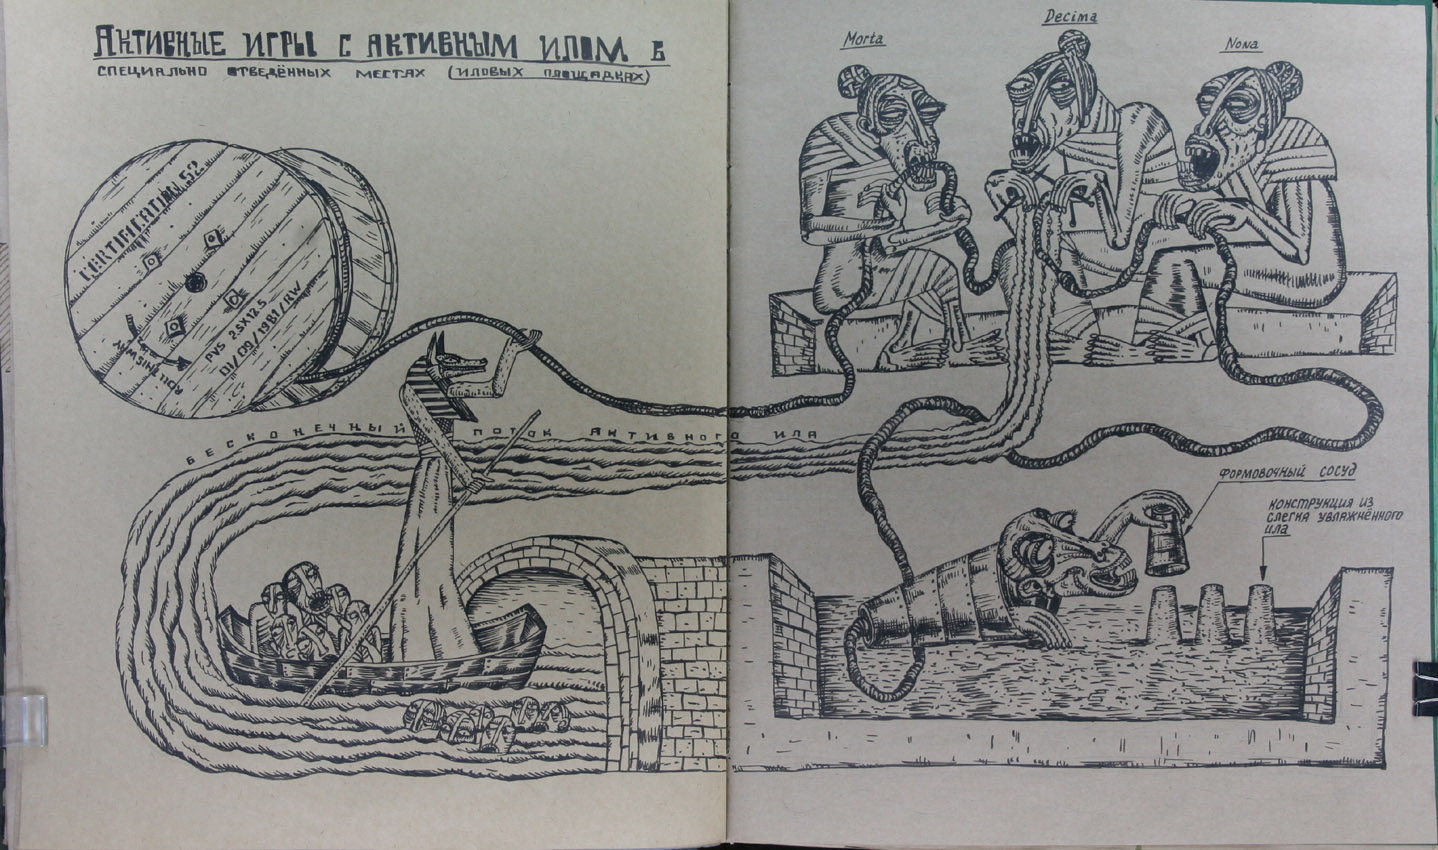 АКТИВНЫЕ ИГРЫ С АКТИВНЫМ ИЛОМ В
СПЕЦИАЛЬНО ОТВЕДЁННЫХ МЕСТАХ (ИЛОВЫХ ПЛОЩАДКАХ)
Morta
Decima
Nona
CERTIFICATION 52
PVS 2.5X12.5
01/09/1981/RW
ROLL THIS WAY
БЕСКОНЕЧНЫЙ ПОТОК АКТИВНОГО ИЛА
ФОРМОВОЧНЫЙ СОСУД
КОНСТРУКЦИЯ ИЗ
СЛЕГКА УВЛАЖНЁННОГО
ИЛА